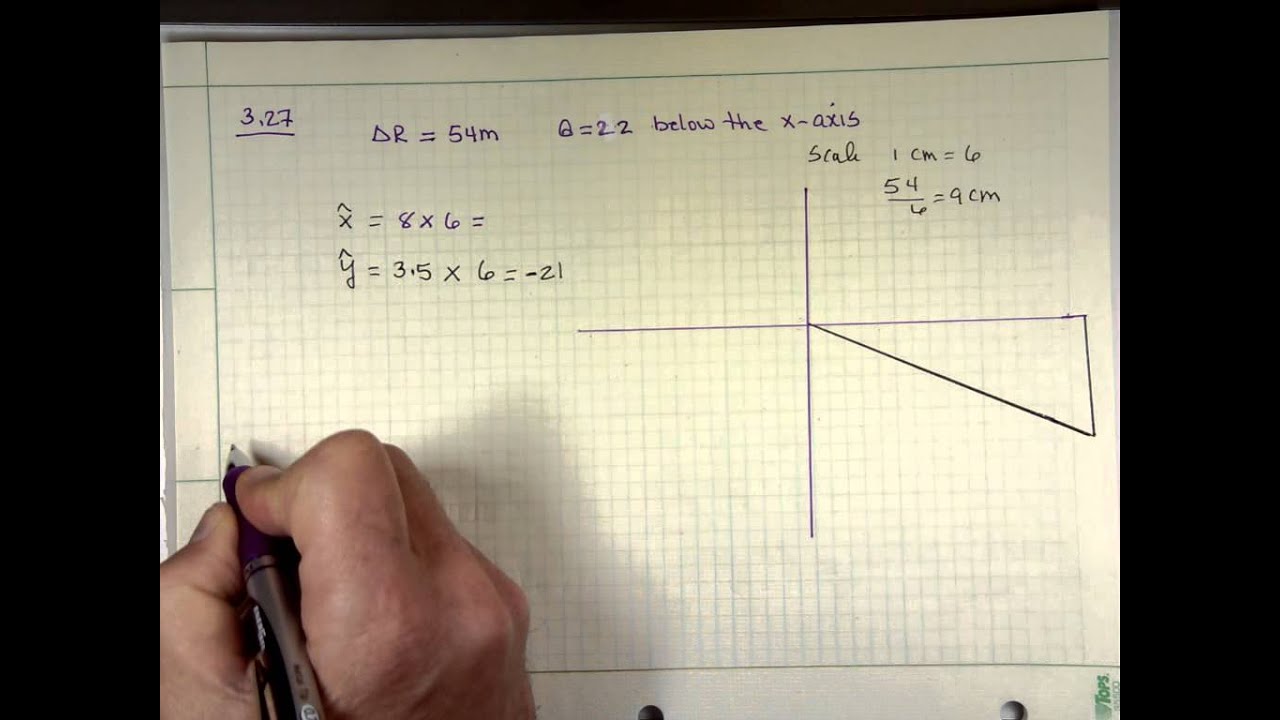 3.27
ΔR = 54m θ=22 below the x-axis
Scale 1 cm = 6
54/6 = 9cm
x̂ = 8 x 6 =
ŷ = 3.5 x 6 = -21
TOPS